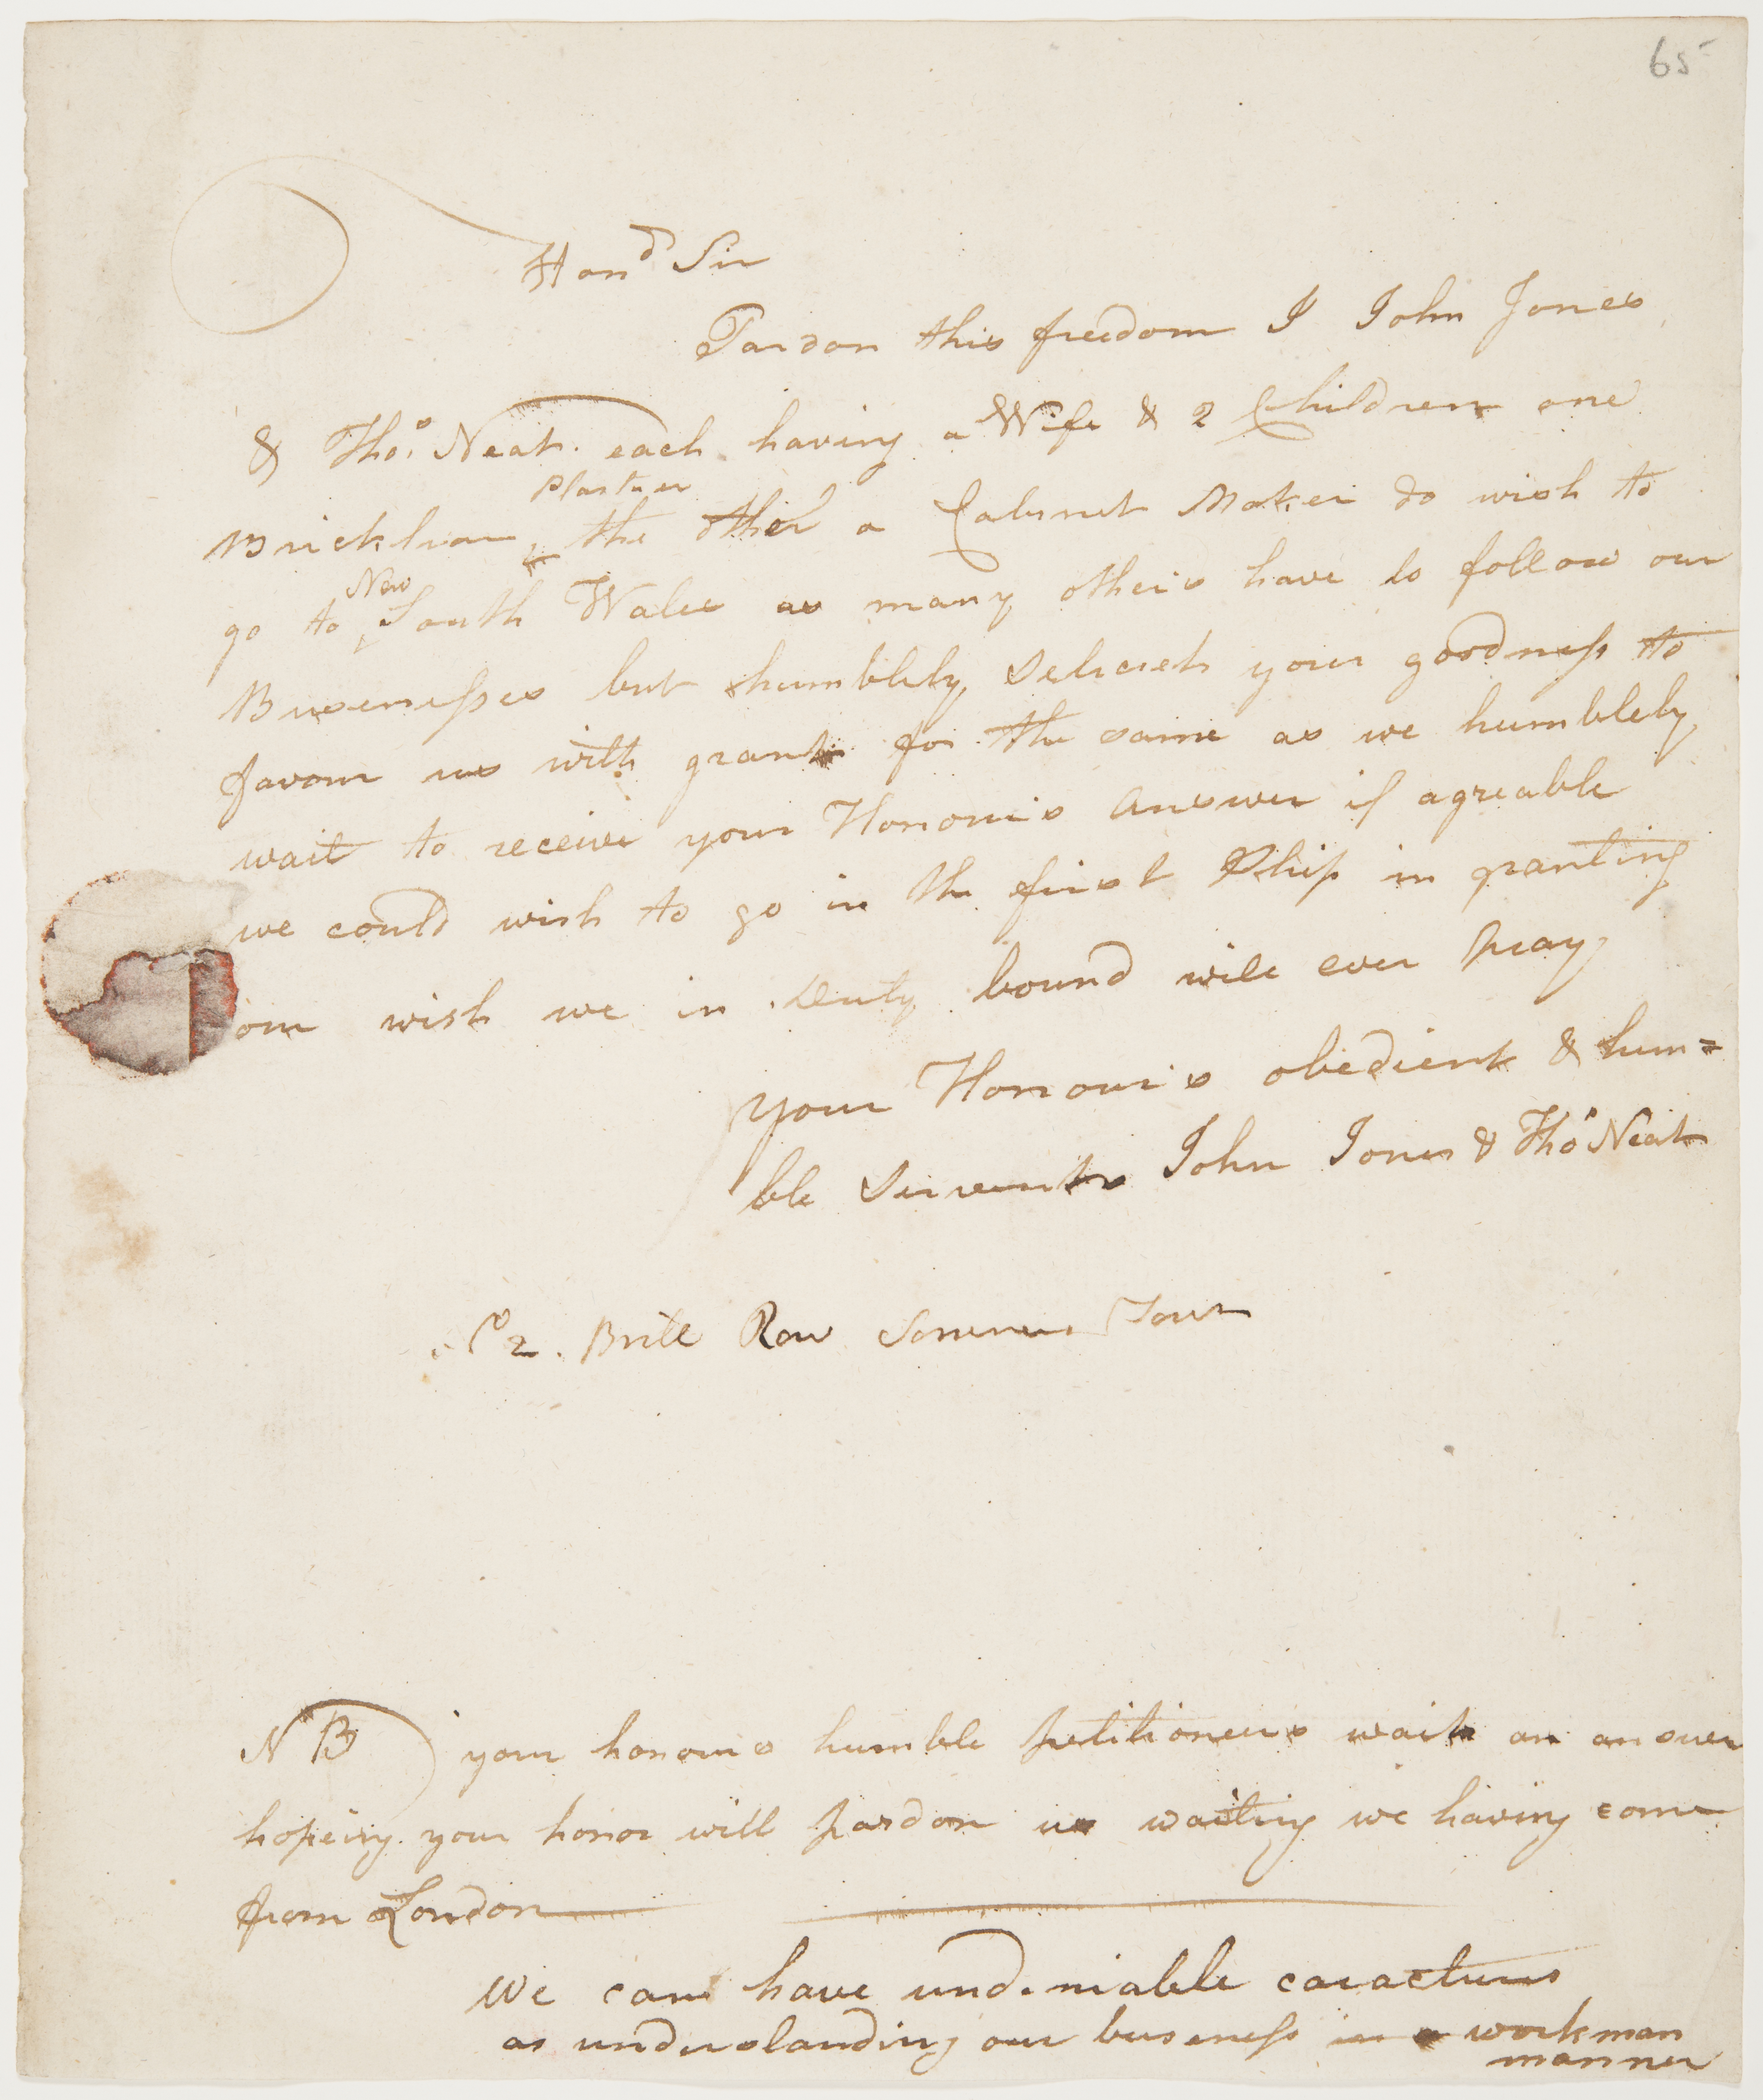 65
Hond Sir
Pardon this freedom I John Jones
& Thos. Neat. each having a Wife & 2 Children one
Plasterer
Bricklear, & the other a Cabinet Maker do wish to
New
go to South Wales as many others have to follow our
Busenesses but humblely Selicieth your goodness to
favour us with grant for the same as we humblely
wait to receive your Honours Answer if agreable
we could wish to go in the first Ship in granting
our wish we in Duty bound will ever Pray
your Honours obedient & hum=
ble Servants John Jones & Thos Neat
No 2. Brill Row Sommers Town
NB) your honours humble petitioners wait an answer
hopeing your honor will pardon us waiting we having come
from London
We can have undeniable caracturs
as understanding our buseness in a workman
manner